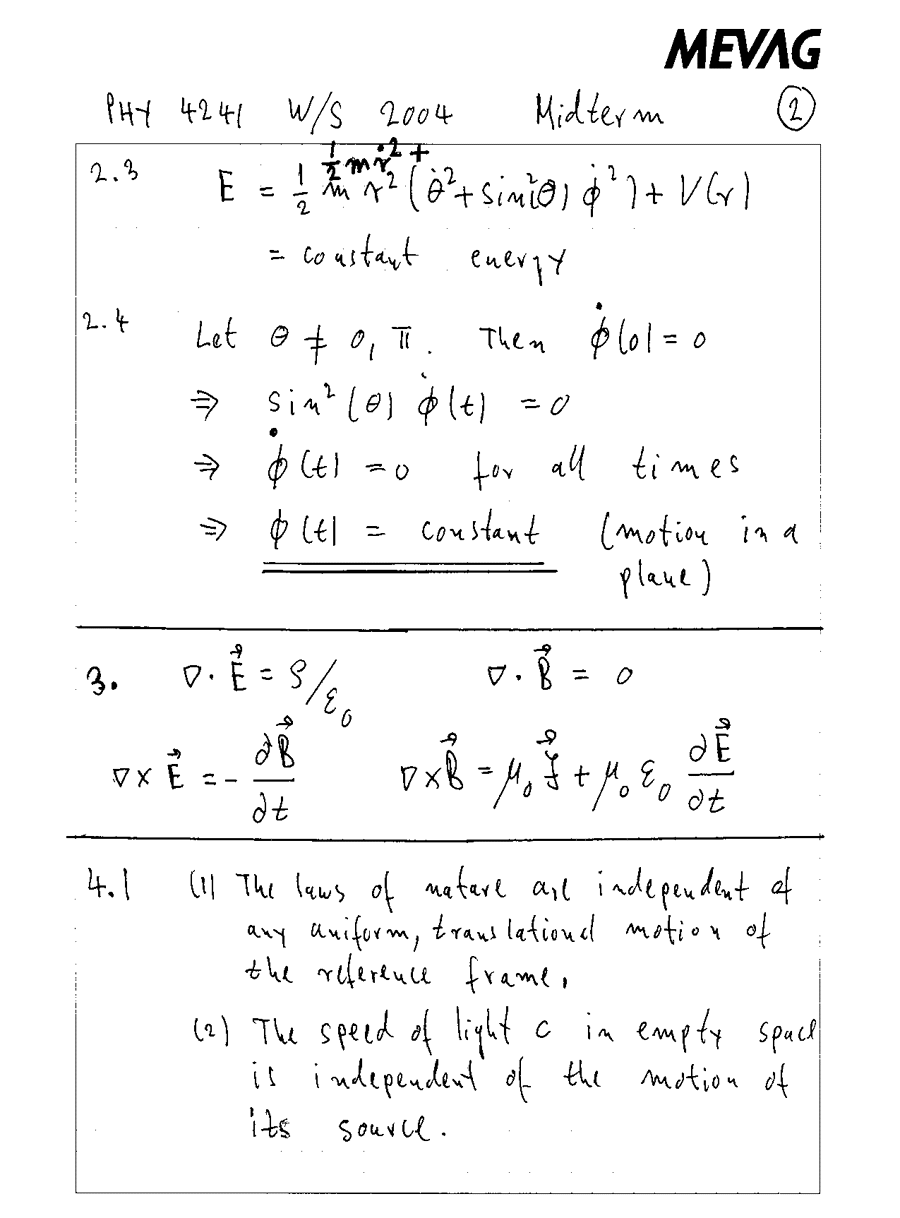 MEVAG
PHY 4241 W/S 2004 Midterm (2)
2.3 E = ½ m ṙ² + ½ m r² (θ̇² + sin²(θ) φ̇²) + V(r)
= constant energy
2.4 Let θ ≠ 0, π. Then φ̇(0) = 0
⇒ sin²(θ) φ̇(t) = 0
⇒ φ̇(t) = 0 for all times
⇒ φ(t) = constant (motion in a
plane)
3. ∇·E⃗ = ρ/ε₀ ∇·B⃗ = 0
∇×E⃗ = − ∂B⃗/∂t ∇×B⃗ = μ₀ J⃗ + μ₀ ε₀ ∂E⃗/∂t
4.1 (1) The laws of nature are independent of
any uniform, translational motion of
the reference frame.
(2) The speed of light c in empty space
is independent of the motion of
its source.